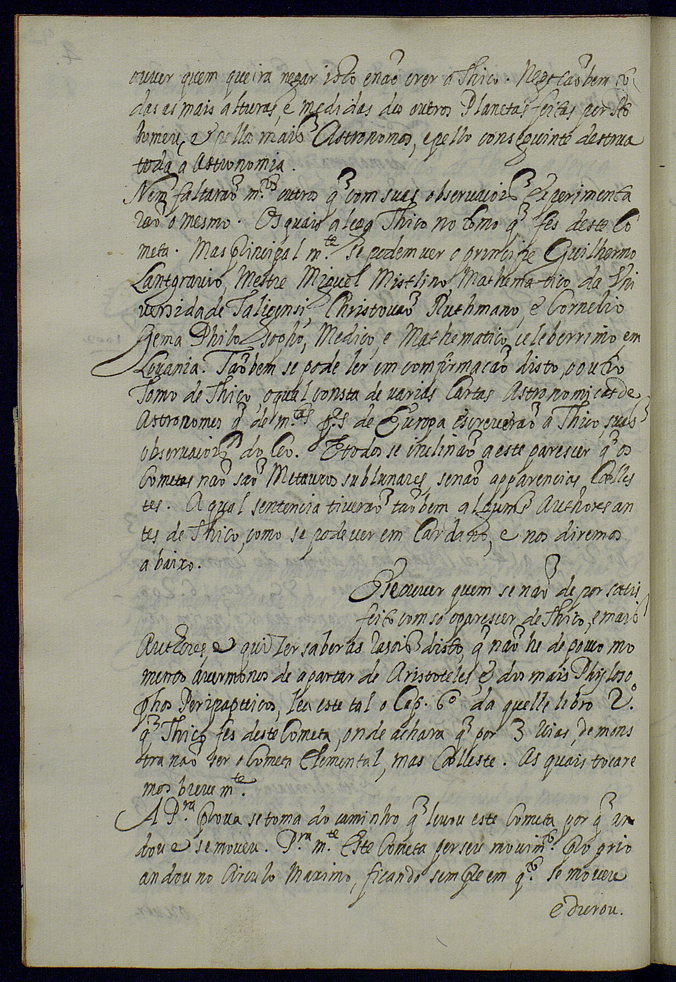 ouver quem queira negar isto e não crer a Thico. Negue tãobem to
das as mais alturas, e medidas dos outros Planetas feitas por Pto
lomeu, e pellos mais Astronomos, e pello conseguinte destrua
toda a Astronomia.
Nem faltarão m.tos outros q̃ com suas observaçois experimenta
rão o mesmo. Os quais alega Thico no tomo q̃ fes deste Co
meta. Mas principal m.te se podem ver o principe Guilhermo
Lantgravio, Mestre Miguel Mistlino Mathematico da Uni
versidade Christovão Ruthmano, e Cornelio
Gema Philosopho, Medico, e Mathematico celeberrimo em
Lovania. Tãobem se pode ler em confirmação disto, o outro
Tomo de Thico, o qual consta de varias Cartas Astronomicas de
Astronomos q̃ de m.tas p.tes de Europa escreverão a Thico, suas
observaçois do Ceo. E todos se inclinão a este parescer q̃ os
Cometas não são Metauros sublunares, senão apparencias Celles
tes. A qual sentencia tiverão tãobem alguns Authores an
tes de Thico, como se pode ver em Cardano, e nos diremos
abaixo.
E se ouver quem se não de por satis
feito com só o parescer de Thico, e mais
Authores, e quizer saber as rasois disto q̃ não he de pouco mo
mento avermonos de apartar de Aristoteles e dos mais Phyloso
phos Peripapeticos, lea este tal o Cap. 6º da quelle lebro 2.º
q̃ Thico fes deste Cometa, onde achara q̃ por 3 vias, demons
tra não ser o Cometa Elemental, mas Celleste. As quais tocare
mos breve m.te.
A P.ra prova se toma do caminho q̃ levou este Cometa por q̃ an
dou e se moveu. P.ra m.te Este Cometa per seu movim.to proprio
andou no Circulo Maximo, ficando sempre em q.to se moveu
e durou.